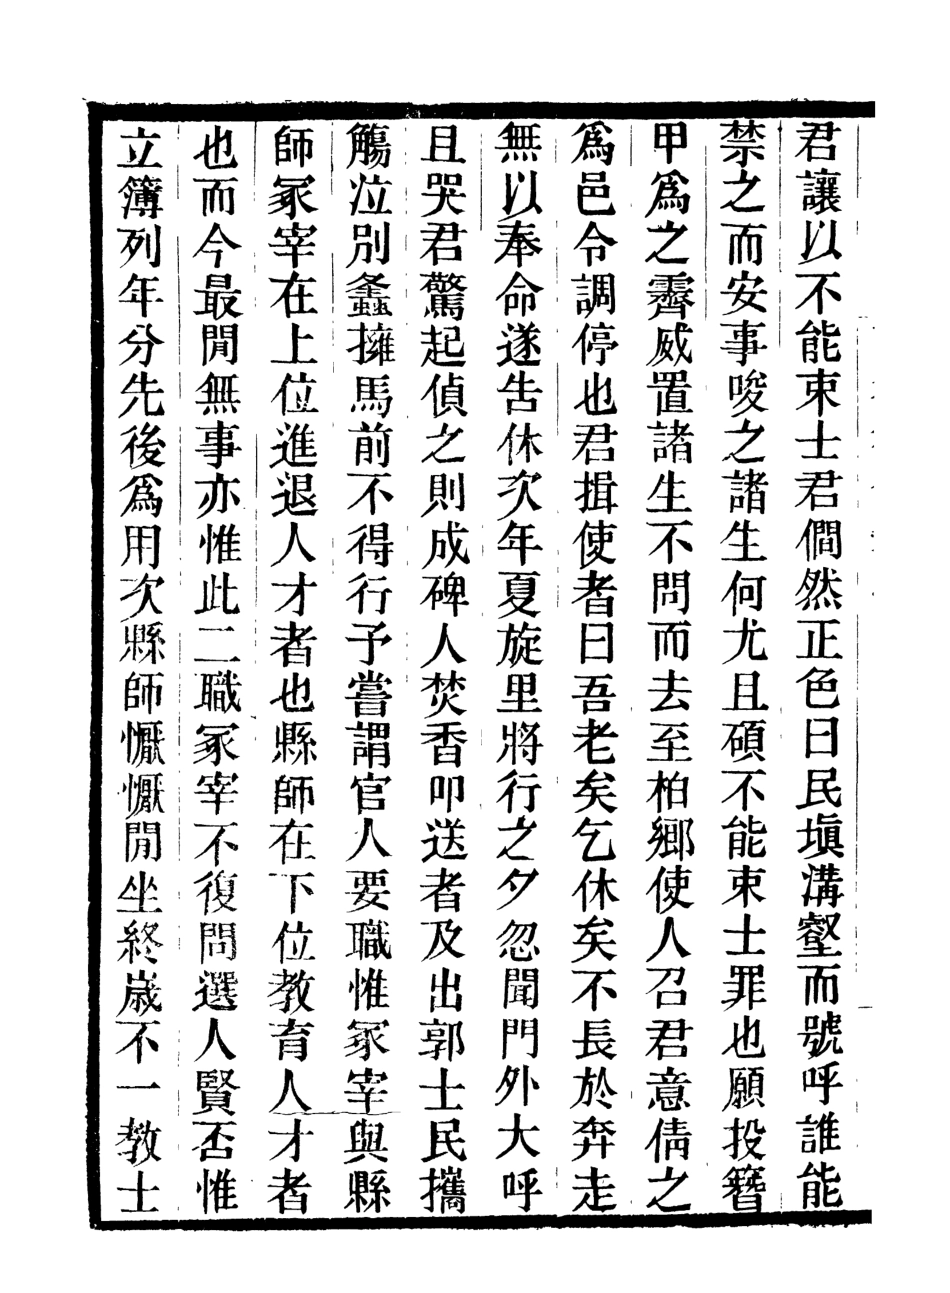 君讓以不能束士君僩然正色曰民塡溝壑而號呼誰能
禁之而安事唆之諸生何尤且碩不能束士罪也願投簪
甲爲之霽威置諸生不問而去至柏鄉使人召君意倩之
爲邑令調停也君揖使者曰吾老矣乞休矣不長於奔走
無以奉命遂告休次年夏旋里將行之夕忽聞門外大呼
且哭君驚起偵之則成碑人焚香叩送者及出郭士民攜
觴泣別螽擁馬前不得行予嘗謂官人要職惟冢宰與縣
師冢宰在上位進退人才者也縣師在下位教育人才者
也而今最閒無事亦惟此二職冢宰不復問選人賢否惟
立簿列年分先後爲用次縣師懨懨閒坐終歲不一教士